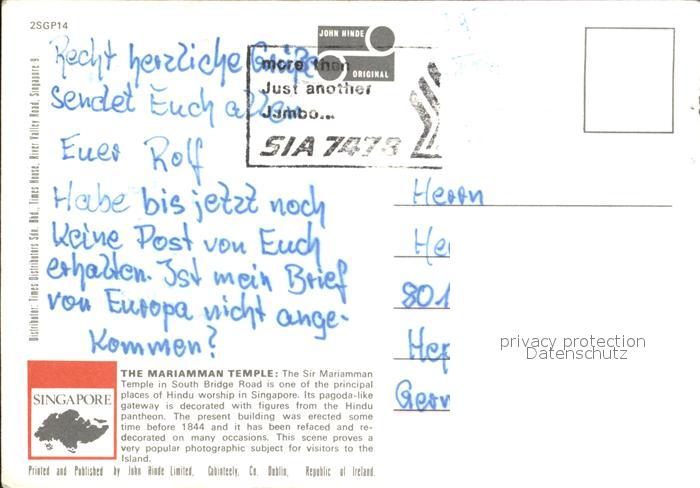 2SGP14
JOHN HINDE
ORIGINAL
Recht herzliche Grüße
sendet Euch allen
Euer Rolf
Habe bis jetzt noch
keine Post von Euch
erhalten. Ist mein Brief
von Europa nicht ange-
kommen?
more than
Just another
Jumbo...
SIA 747B
Herrn
He
801
Her
Germ
privacy protection
Datenschutz
Distributor: Times Distributors Sdn. Bhd., Times House, River Valley Road, Singapore 9.
SINGAPORE
THE MARIAMMAN TEMPLE: The Sir Mariamman
Temple in South Bridge Road is one of the principal
places of Hindu worship in Singapore. Its pagoda-like
gateway is decorated with figures from the Hindu
pantheon. The present building was erected some
time before 1844 and it has been refaced and re-
decorated on many occasions. This scene proves a
very popular photographic subject for visitors to the
Island.
Printed and Published by John Hinde Limited, Cabinteely, Co. Dublin, Republic of Ireland.